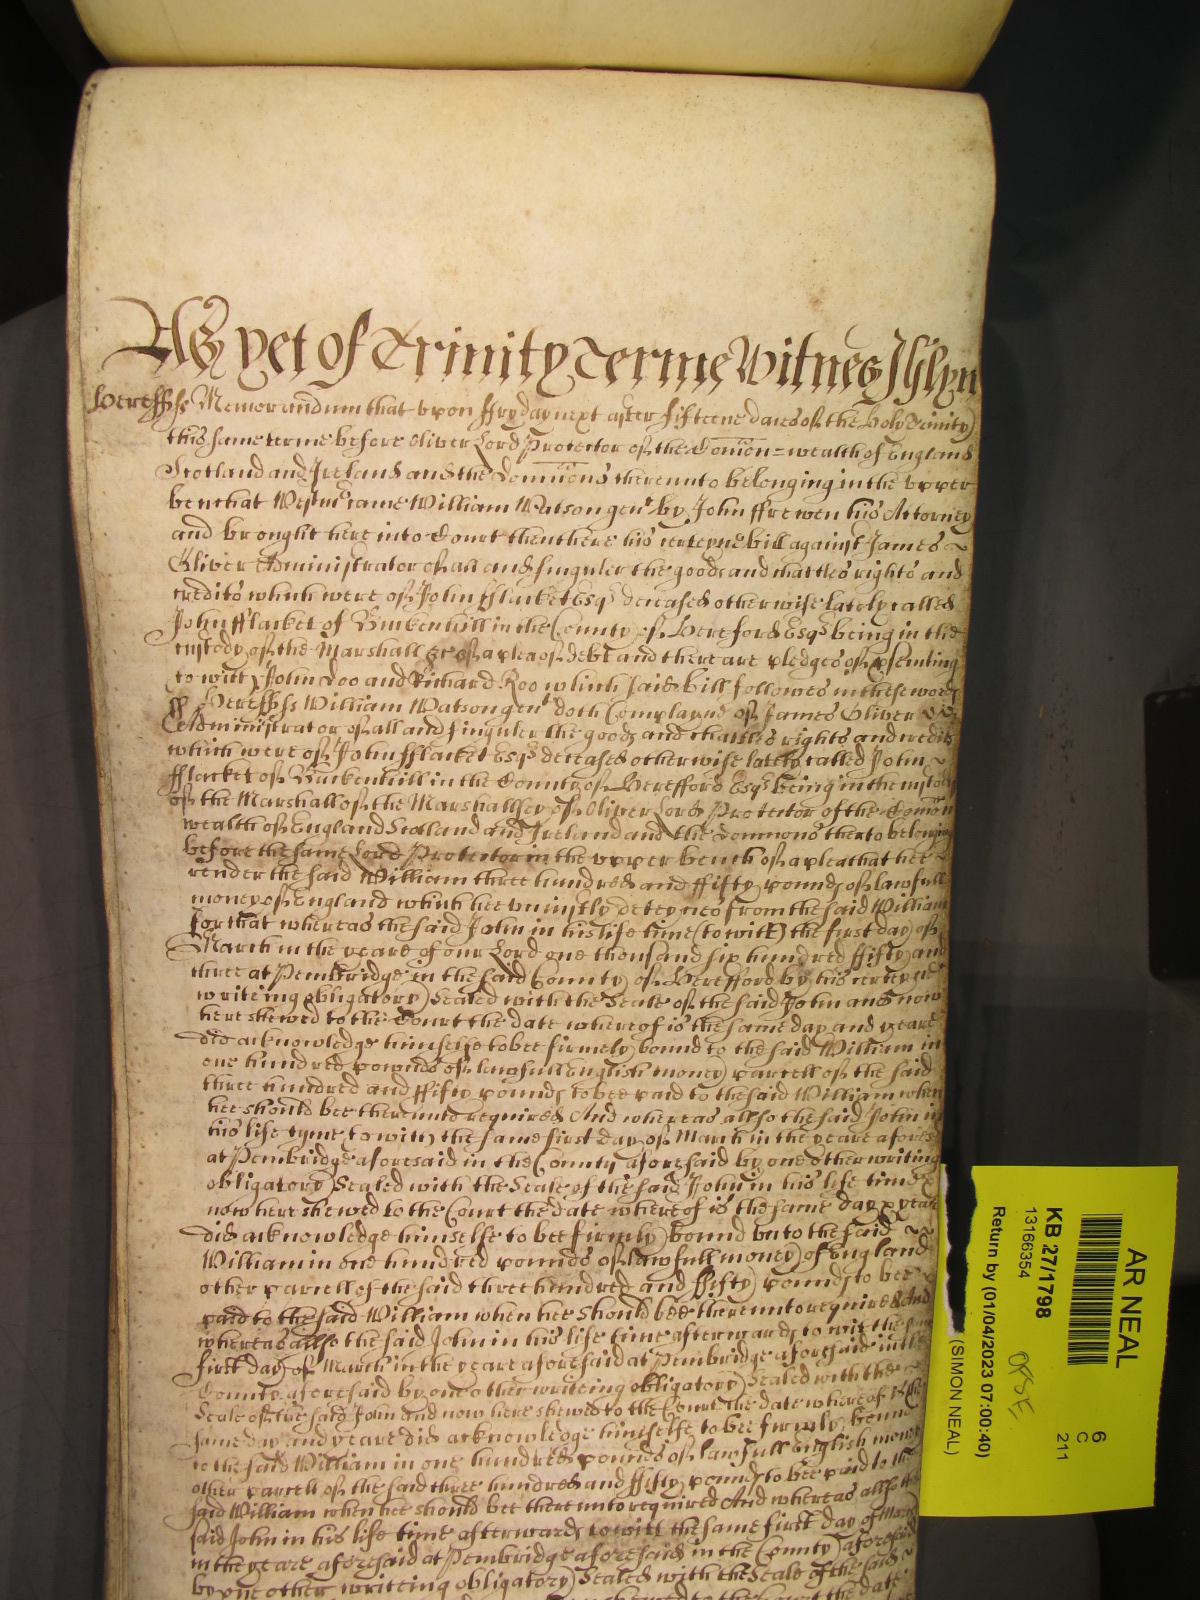 As yet of Trinity Terme Witnes
Hereff ss Memorandum that upon ffryday next after fifteene daies of the Holy Trinity
this same terme before Oliver Lord Protector of the Comon=wealth of England
Scotland and Ireland and the Domions thereunto belonging in the upper
bench at Westmr came William Watson gent by John ffrewen his Attorney
and brought here into Court then there his certeyne bill against James ~
Oliver Administrator of all and singuler the goods and chattles rights and
credits which were of John fflacket Esqr deceased otherwise lately called
John fflacket of in the County of Hereford Esqr being in the
custody of the Marshall &c of a plea of debt and there are pledges of psenting
to witt John Doo and Richard Roo which said bill followes in these words
ss Hereff ss William Watson gent doth Complayne of James Oliver
Administrator of all and singuler the goods and chattles rights and credits
which were of John fflacket Esqr deceased otherwise lately called John ~
fflacket of in the County of Herefford Esqr being in the custody
of the Marshall of the Marshallsey of Oliver Lord Protector of the Comon
wealth of England Scotland and Ireland and the Domions therto belonging
before the same Lord Protector in the upper bench of a plea that hee ~
render the said William three hundred and ffifty pounds of lawfull
money of England which hee uniustly deteynes from the said William
for that whereas the said John in his life time (to witt) the first day of
March in the yeare of our Lord one thousand six hundred ffifty and
three at Pembridge in the said County of Herefford by his certeyne
writeing obligatory Sealed with the Seale of the said John and now
here shewed to the Court the date whereof is the same day and yeare
did acknowledge himselfe to bee firmely bound to the said William in
one hundred pounds of lawfull English money parcell of the said
three hundred and ffifty pounds to bee paid to the said William when
hee should bee thereunto required And whereas allso the said John in
his life tyme to witt the same first day of March in the yeare aforesd
at Pembridge aforesaid in the County aforesaid by one other writing
obligatory Sealed with the Seale of the said John in his life time &
now here shewed to the Court the date whereof is the same day & yeare
did acknowledge himselfe to bee firmly bound unto the said ~ ~
William in one hundred pounds of lawfull money of England
other parcell of the said three hundred and ffifty pounds to bee ~
paid to the said William when hee should bee thereunto required And
whereas allso the said John in his life time afterwards to witt the same
first day of March in the yeare aforesaid at Pembridge aforesaid in the
County aforesaid by one other writeing obligatory Sealed with the
Seale of the said John and now here shewed to the Court the date whereof is the
same day and yeare did acknowledge himselfe to bee firmly bound
to the said William in one hundred pounds of lawfull English money
other parcell of the said three hundred and ffifty pounds to bee paid to the
said William when hee should bee thereunto required And whereas allso the
said John in his life time afterwards to witt the same first day of March
in the yeare aforesaid at Pembridge aforesaid in the County aforesaid
by one other writeing obligatory Sealed with the Seale of the said
shewed to the Court the date
AR NEAL
KB 27/1798
13166354
Return by (01/04/2023 07:00:40)
(SIMON NEAL)
6
C
211